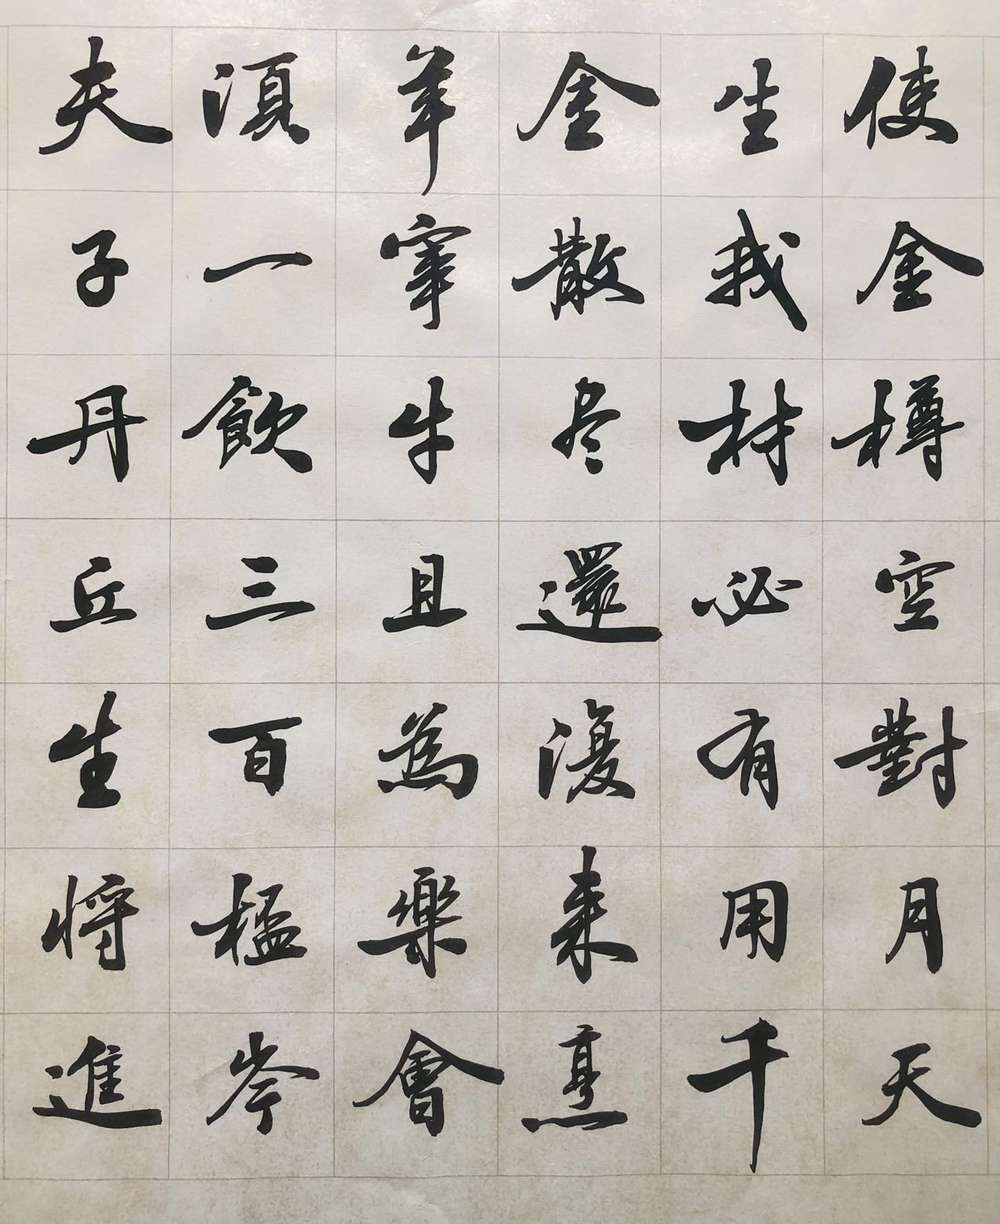 使金樽空對月天
生我材必有用千
金散尽還復来烹
羊宰牛且為樂會
須一飲三百杯岑
夫子丹丘生将進